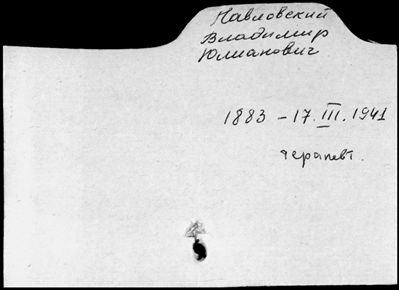 Павловский
Владимир
Юлианович
1883 – 17.III.1941
терапевт.